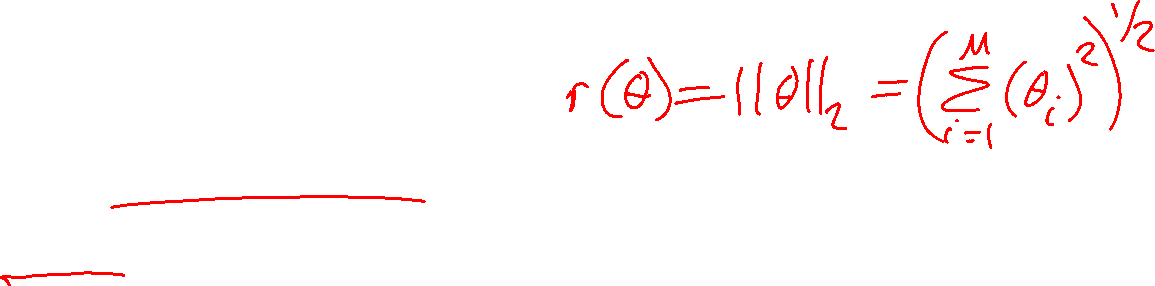 r(θ) = ||θ||₂ = (∑_{i=1}^{M} (θ_i)²)^{1/2}